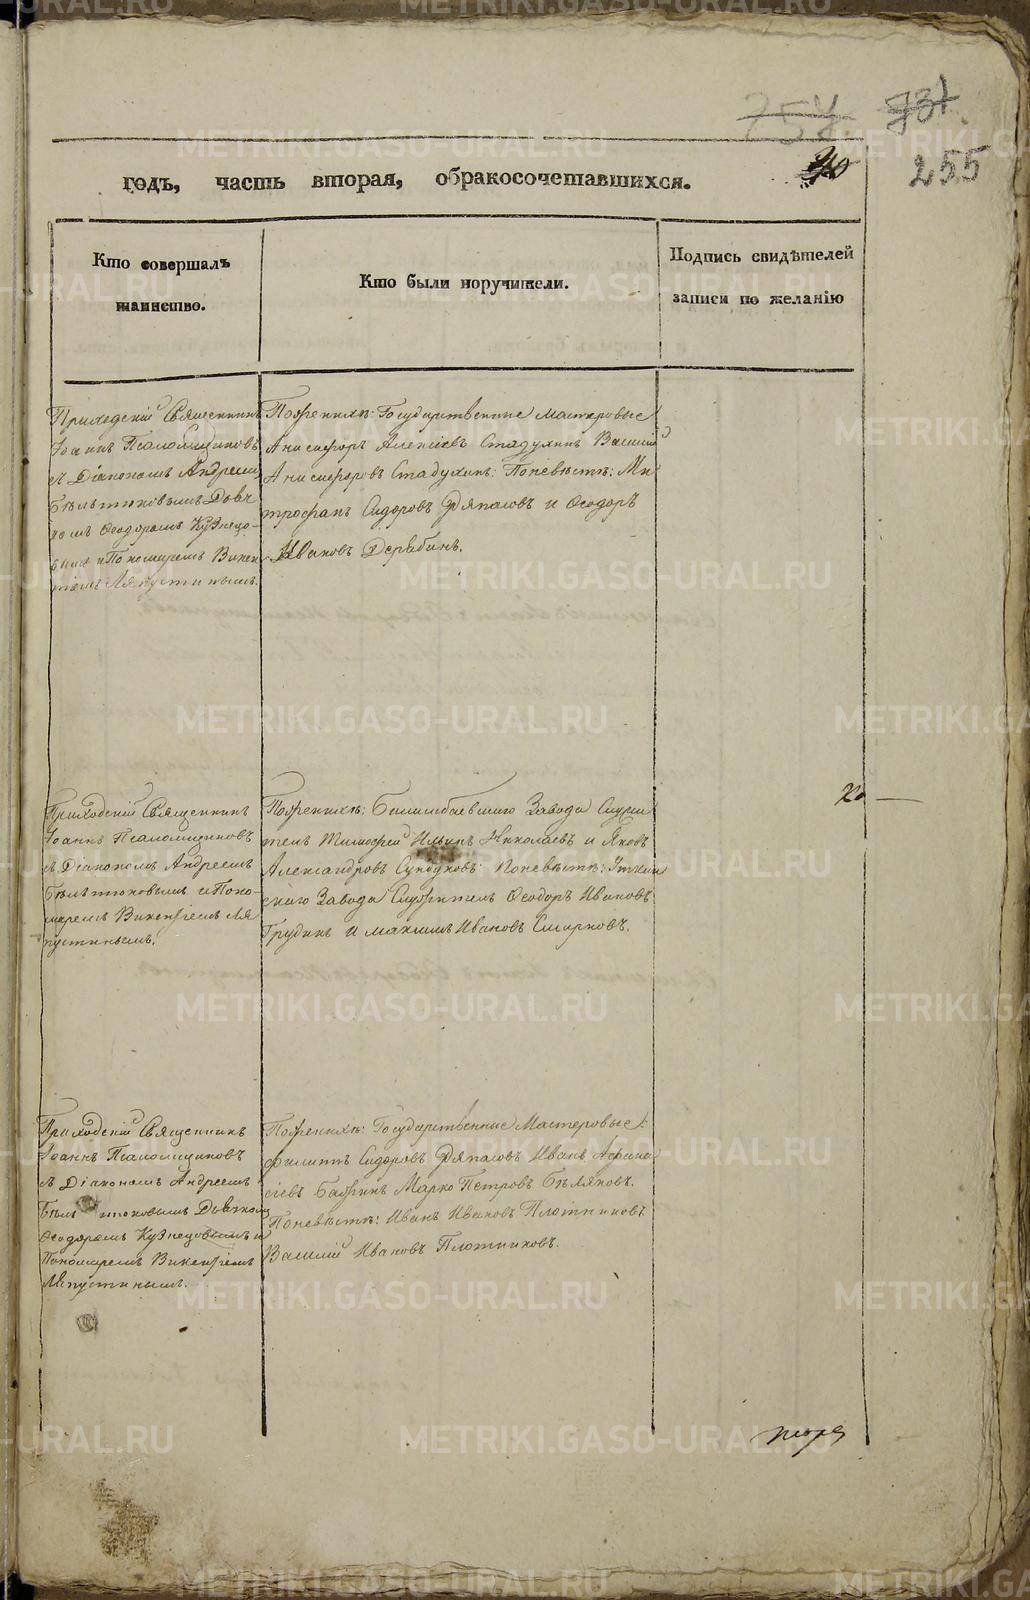 254 731
255
годъ, часть вторая, обракосочетавшихся.
Кто совершалъ таинство.
Кто были поручители.
Подпись свидѣтелей записи по желанію
Приходскій Священникъ
Іоаннъ Псаломщиковъ
съ Діакономъ Андреемъ
Бѣльтюковымъ Дьяч
комъ Ѳеодоромъ Кузнецо-
вымъ и Пономаремъ Викен
тіемъ Ляпустинымъ.
Поженихѣ: Государственные мастеровые
Анисифоръ Алексѣевъ Стадухинъ Василій
Анисифоровъ Стадухинъ: Поневѣстѣ: Ми
трофанъ Сидоровъ Ряпасовъ и Ѳеодоръ
Ивановъ Дерябинъ.
Приходскій Священникъ
Іоаннъ Псаломщиковъ
съ Діакономъ Андреемъ
Бѣльтюковымъ и Поно-
маремъ Викентіемъ Ля
пустинымъ.
Поженихѣ: Билимбаевскаго Завода Служи
тель Тимофей Ильинъ Николаевъ и Яковъ
Александровъ Сундуковъ: Поневѣстѣ: Уткин
скаго Завода Служители Ѳеодоръ Ивановъ
Грудинъ и Максимъ Ивановъ Смирновъ.
Приходскій Священникъ
Іоаннъ Псаломщиковъ
съ Діакономъ Андреемъ
Бѣльтюковымъ Дьячкомъ
Ѳеодоромъ Кузнецовымъ и
Пономаремъ Викентіемъ
Ляпустинымъ.
Поженихѣ: Государственные Мастеровые
Филиппъ Сидоровъ Ряпасовъ Иванъ Афана
сіевъ Бажинъ Марко Петровъ Бѣляковъ.
Поневѣстѣ: Иванъ Ивановъ Плотниковъ
Василій Ивановъ Плотниковъ.
METRIKI.GASO-URAL.RU